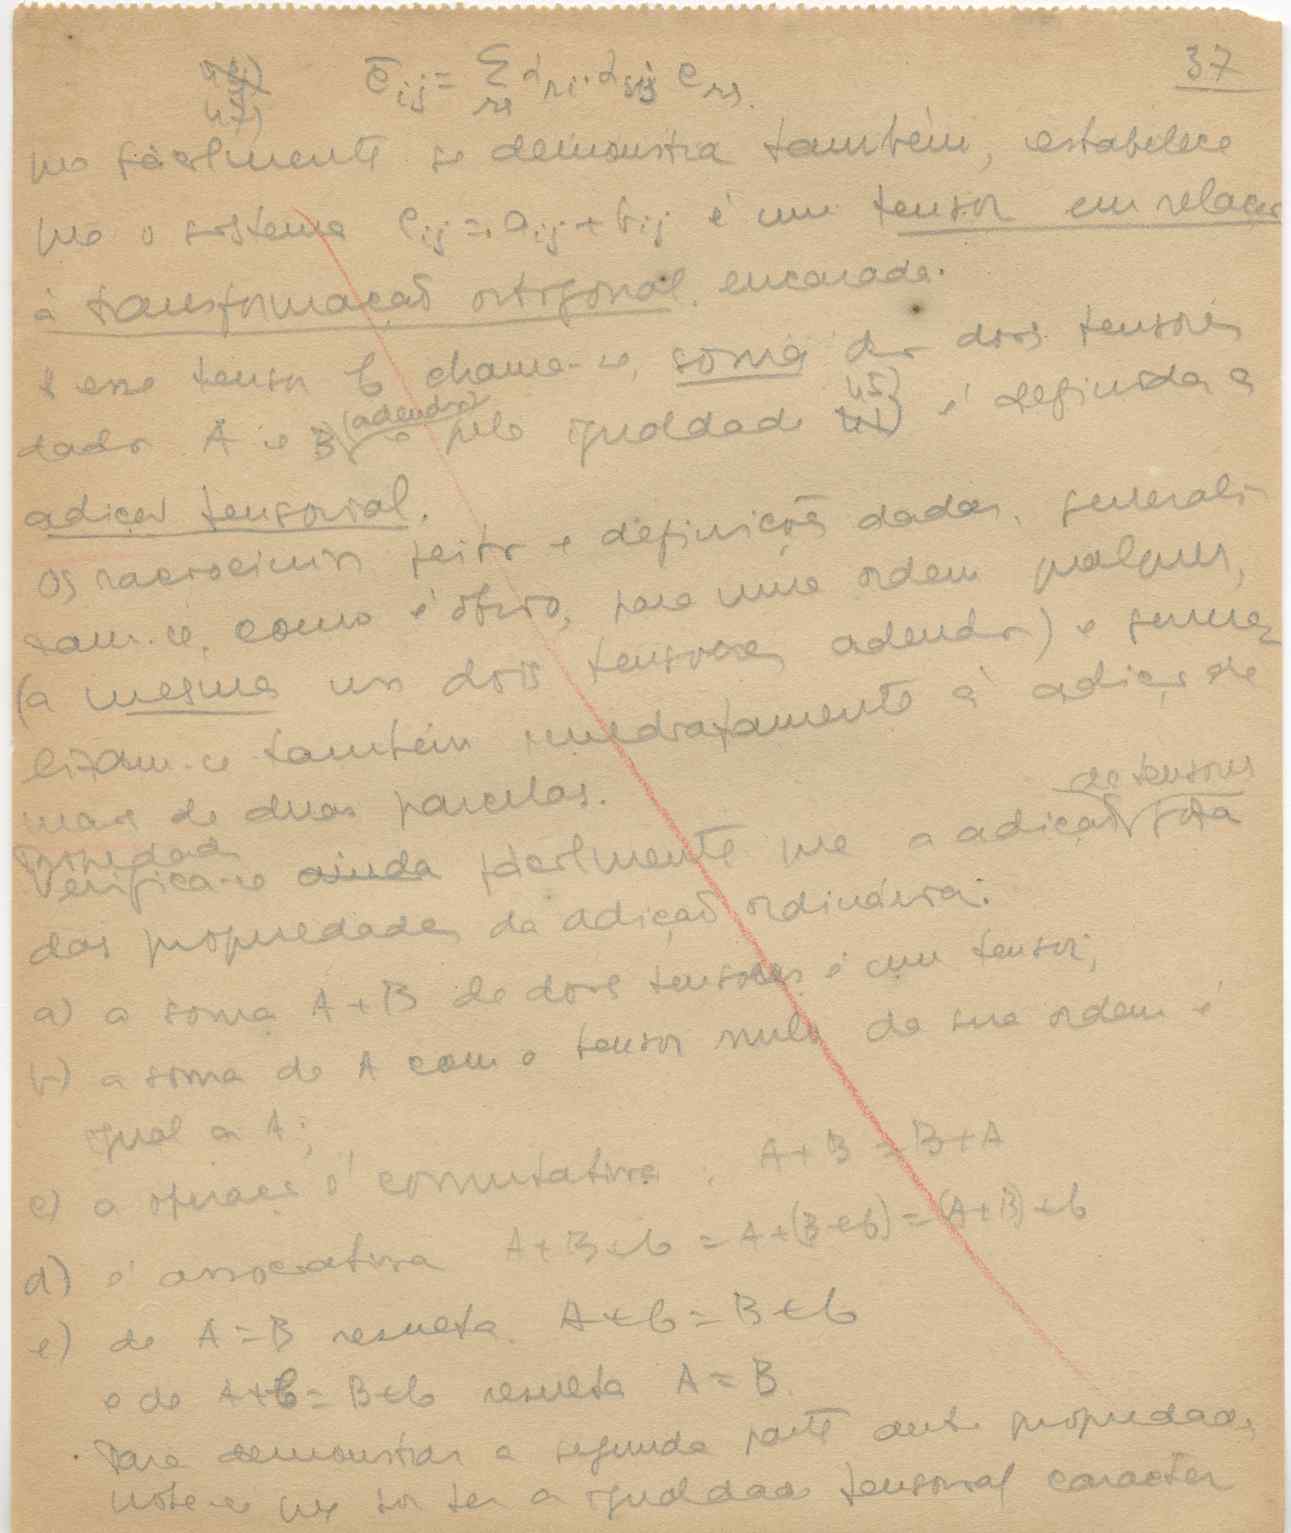 37
47) c̄ij = Σrs αri · αsj crs.
que facilmente se demonstra também, estabelece
que o sistema cij = aij + bij é um tensor em relação
à transformação ortogonal encarada.
A esse tensor C chama-se soma dos dois tensores
dados A e B (adendos) e pela igualdade 45) é definida a
adição tensorial.
Os raciocínios feitos e definições dadas, generali-
zam-se, como é óbvio, para uma ordem qualquer,
(a mesma nos dois tensores adendos) e genera
lizam-se também imediatamente à adição de
mais de duas parcelas.
Propriedades
Verifica-se ainda facilmente que a adição de tensores goza
das propriedades da adição ordinária:
a) a soma A + B de dois tensores é um tensor;
b) a soma de A com o tensor nulo da sua ordem é
igual a A;
c) a operação é comutativa: A + B = B + A
d) é associativa A + B + C = A + (B + C) = (A + B) + C
e) de A = B resulta A + C = B + C
e de A + C = B + C resulta A = B.
Para demonstrar a segunda parte desta propriedade,
note-se que por ter a igualdade tensorial carácter